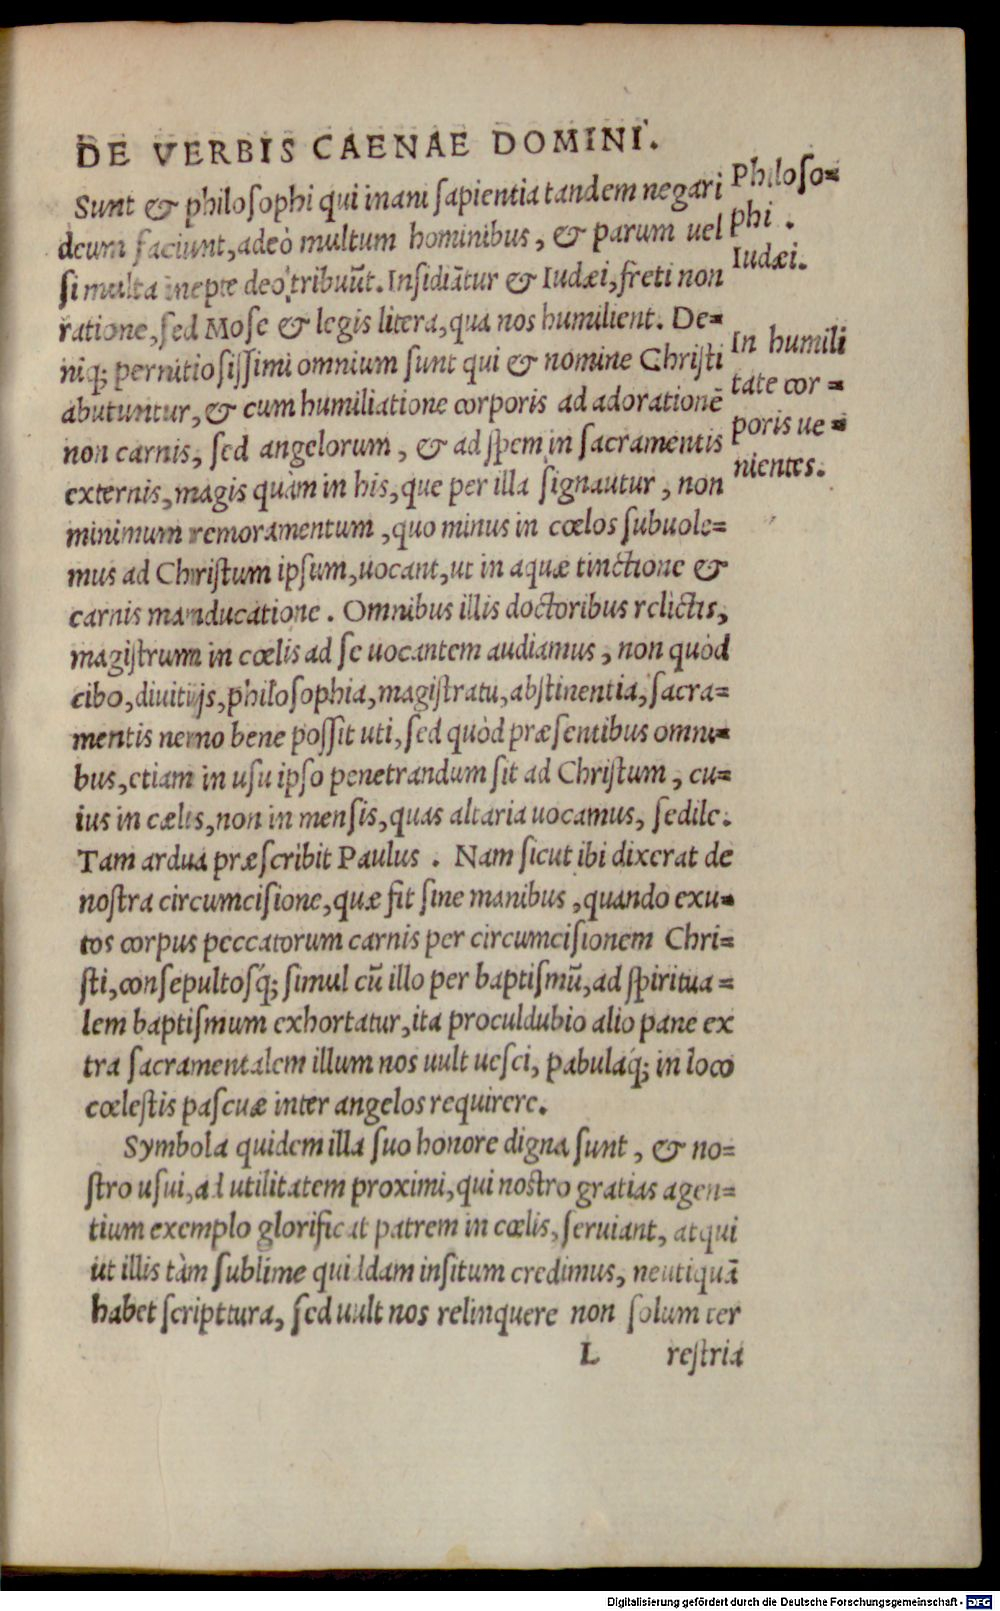 DE VERBIS CAENAE DOMINI.
Sunt & philoſophi qui inani ſapientia tandem negari
deum faciunt, adeò multum hominibus, & parum uel
ſi multa inepte deo tribuũt. Inſidiãtur & Iudæi, freti non
ratione, ſed Moſe & legis litera, qua nos humilient. De=
niq; pernitioſiſſimi omnium ſunt qui & nomine Chriſti
abutuntur, & cum humiliatione corporis ad adorationē
non carnis, ſed angelorum, & ad ſpem in ſacramentis
externis, magis quàm in his, que per illa ſignautur, non
minimum remoramentum, quo minus in cœlos ſubuole=
mus ad Chriſtum ipſum, uocant, ut in aquæ tinctione &
carnis manducatione. Omnibus illis doctoribus relictis,
magiſtrum in cœlis ad ſe uocantem audiamus, non quòd
cibo, diuitijs, philoſophia, magiſtratu, abſtinentia, ſacra=
mentis nemo bene poſſit uti, ſed quòd præſentibus omni=
bus, etiam in uſu ipſo penetrandum ſit ad Chriſtum, cu=
ius in cælis, non in menſis, quas altaria uocamus, ſedile.
Tam ardua præſcribit Paulus. Nam ſicut ibi dixerat de
noſtra circumciſione, quæ fit ſine manibus, quando exu=
tos corpus peccatorum carnis per circumciſionem Chri=
ſti, conſepultoſq́; ſimul cũ illo per baptiſmũ, ad ſpiritua=
lem baptiſmum exhortatur, ita proculdubio alio pane ex
tra ſacramentalem illum nos uult ueſci, pabulaq́; in loco
cœleſtis paſcuæ inter angelos requirere.
Symbola quidem illa ſuo honore digna ſunt, & no=
ſtro uſui, ad utilitatem proximi, qui noſtro gratias agen=
tium exemplo glorificat patrem in cœlis, ſeruiant, atqui
ut illis tàm ſublime quiddam inſitum credimus, neutiquã
habet ſcripttura, ſed uult nos relinquere non ſolum ter
L reſtria
Philoſo=
phi.
Iudæi.
In humili
tate cor=
poris ue=
nientes.
Digitalisierung gefördert durch die Deutsche Forschungsgemeinschaft - DFG